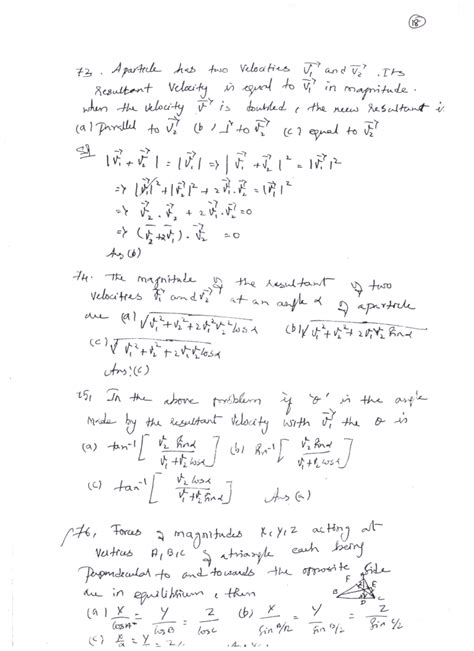 18
73. A particle has two velocities v₁→ and v₂→. Its
resultant velocity is equal to v₁→ in magnitude.
when the velocity v→ is doubled, the new resultant is
(a) Parallel to v₂→ (b) ⊥r to v₂→ (c) equal to v₂→
Sol
|v₁→ + v₂→| = |v₁→| => |v₁→ + v₂→|² = |v₁→|²
=> |v₁→|² + |v₂→|² + 2 v₁→. v₂→ = |v₁→|²
=> v₂→ . v₂→ + 2 v₁→. v₂→ = 0
=> (v₂→ + 2v₁→) . v₂→ = 0
Ans (b)
74. The magnitude of the resultant of two
velocities v₁→ and v₂→ at an angle α of a particle
are (a) √v₁² + v₂² + 2v₁²v₂² cosα (b) √v₁² + v₂² + 2v₁v₂ sinα
(c) √v₁² + v₂² + 2v₁v₂ cosα
Ans: (c)
75. In the above problem if 'θ' is the angle
made by the resultant velocity with v₁→ the θ is
(a) tan⁻¹ [v₂ sinα / v₁ + v₂ cosα] (b) sin⁻¹ [v₂ sinα / v₁ + v₂ cosα]
(c) tan⁻¹ [v₂ cosα / v₁ + v₂ sinα] Ans (a)
76. Forces of magnitudes X, Y, Z acting at
vertices A, B, C of a triangle each being
Perpendicular to and towards the opposite side
are in equilibrium, then
A F E B D C
(a) X/cosA = Y/cosB = Z/cosC (b) X/sin A/2 = Y/sin B/2 = Z/sin C/2
(c) X/a = Y/b = Z/c